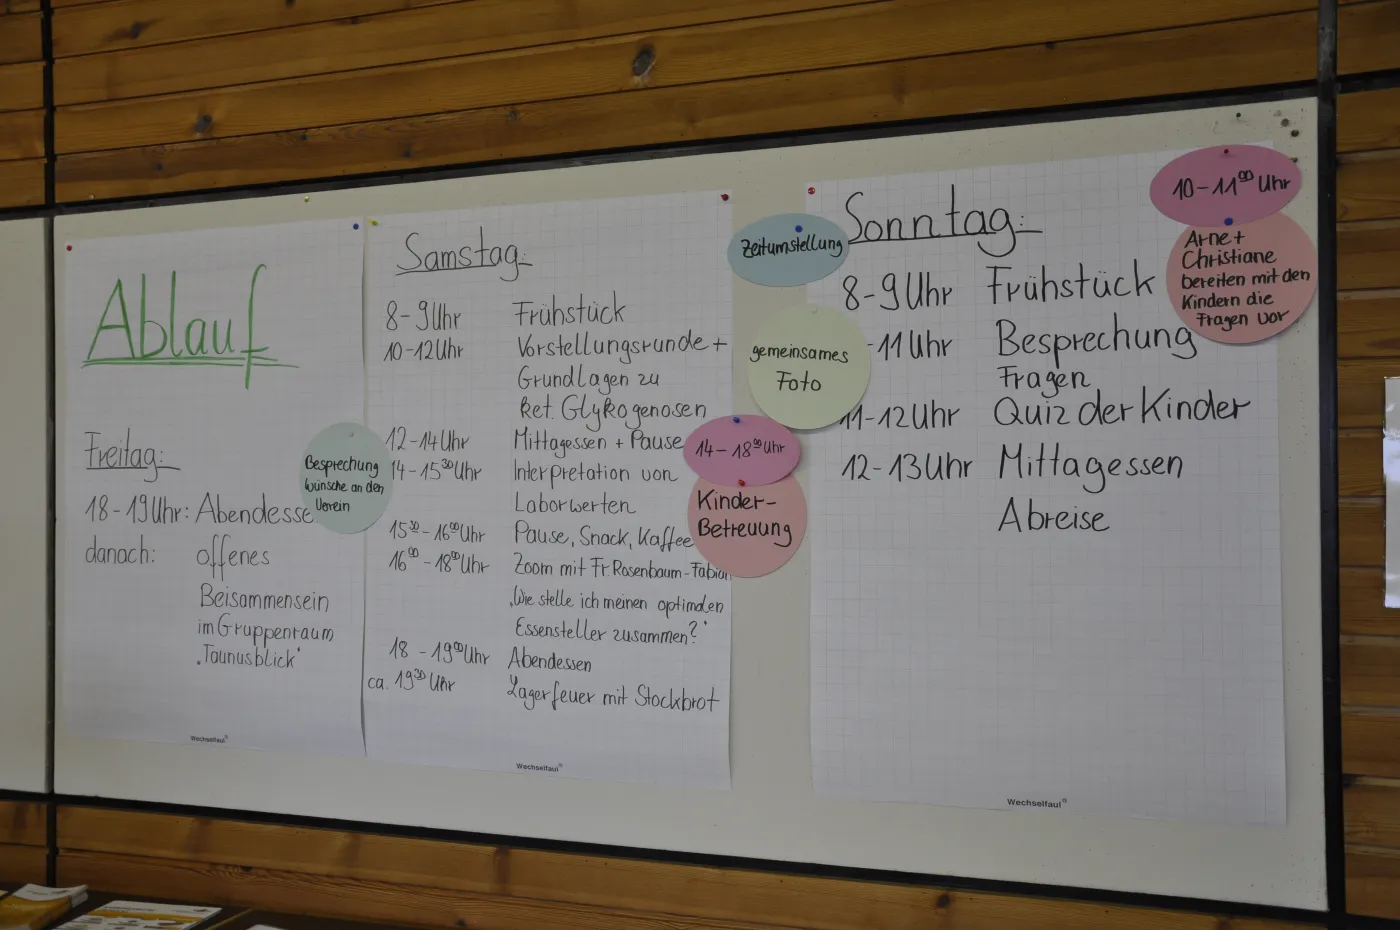 Ablauf
Freitag:
18-19Uhr: Abendesse
danach: offenes
Beisammensein
im Gruppenraum
"Taunusblick"
Wechselfaul®
Besprechung
Wünsche an den
Verein
Samstag:
8-9Uhr Frühstück
10-12Uhr Vorstellungsrunde +
Grundlagen zu
ket. Glykogenosen
12-14Uhr Mittagessen + Pause
14-15³⁰Uhr Interpretation von
Laborwerten
15³⁰-16⁰⁰Uhr Pause, Snack, Kaffee
16⁰⁰-18⁰⁰Uhr Zoom mit Fr. Rosenbaum-Fabian
"Wie stelle ich meinen optimalen
Essensteller zusammen?"
18-19⁰⁰Uhr Abendessen
ca. 19³⁰Uhr Lagerfeuer mit Stockbrot
Wechselfaul®
14-18⁰⁰Uhr
Kinder-
Betreuung
Zeitumstellung
gemeinsames
Foto
Sonntag:
8-9Uhr Frühstück
-11Uhr Besprechung
Fragen
11-12Uhr Quiz der Kinder
12-13Uhr Mittagessen
Abreise
Wechselfaul®
10-11⁰⁰Uhr
Arne +
Christiane
bereiten mit den
Kindern die
Fragen vor